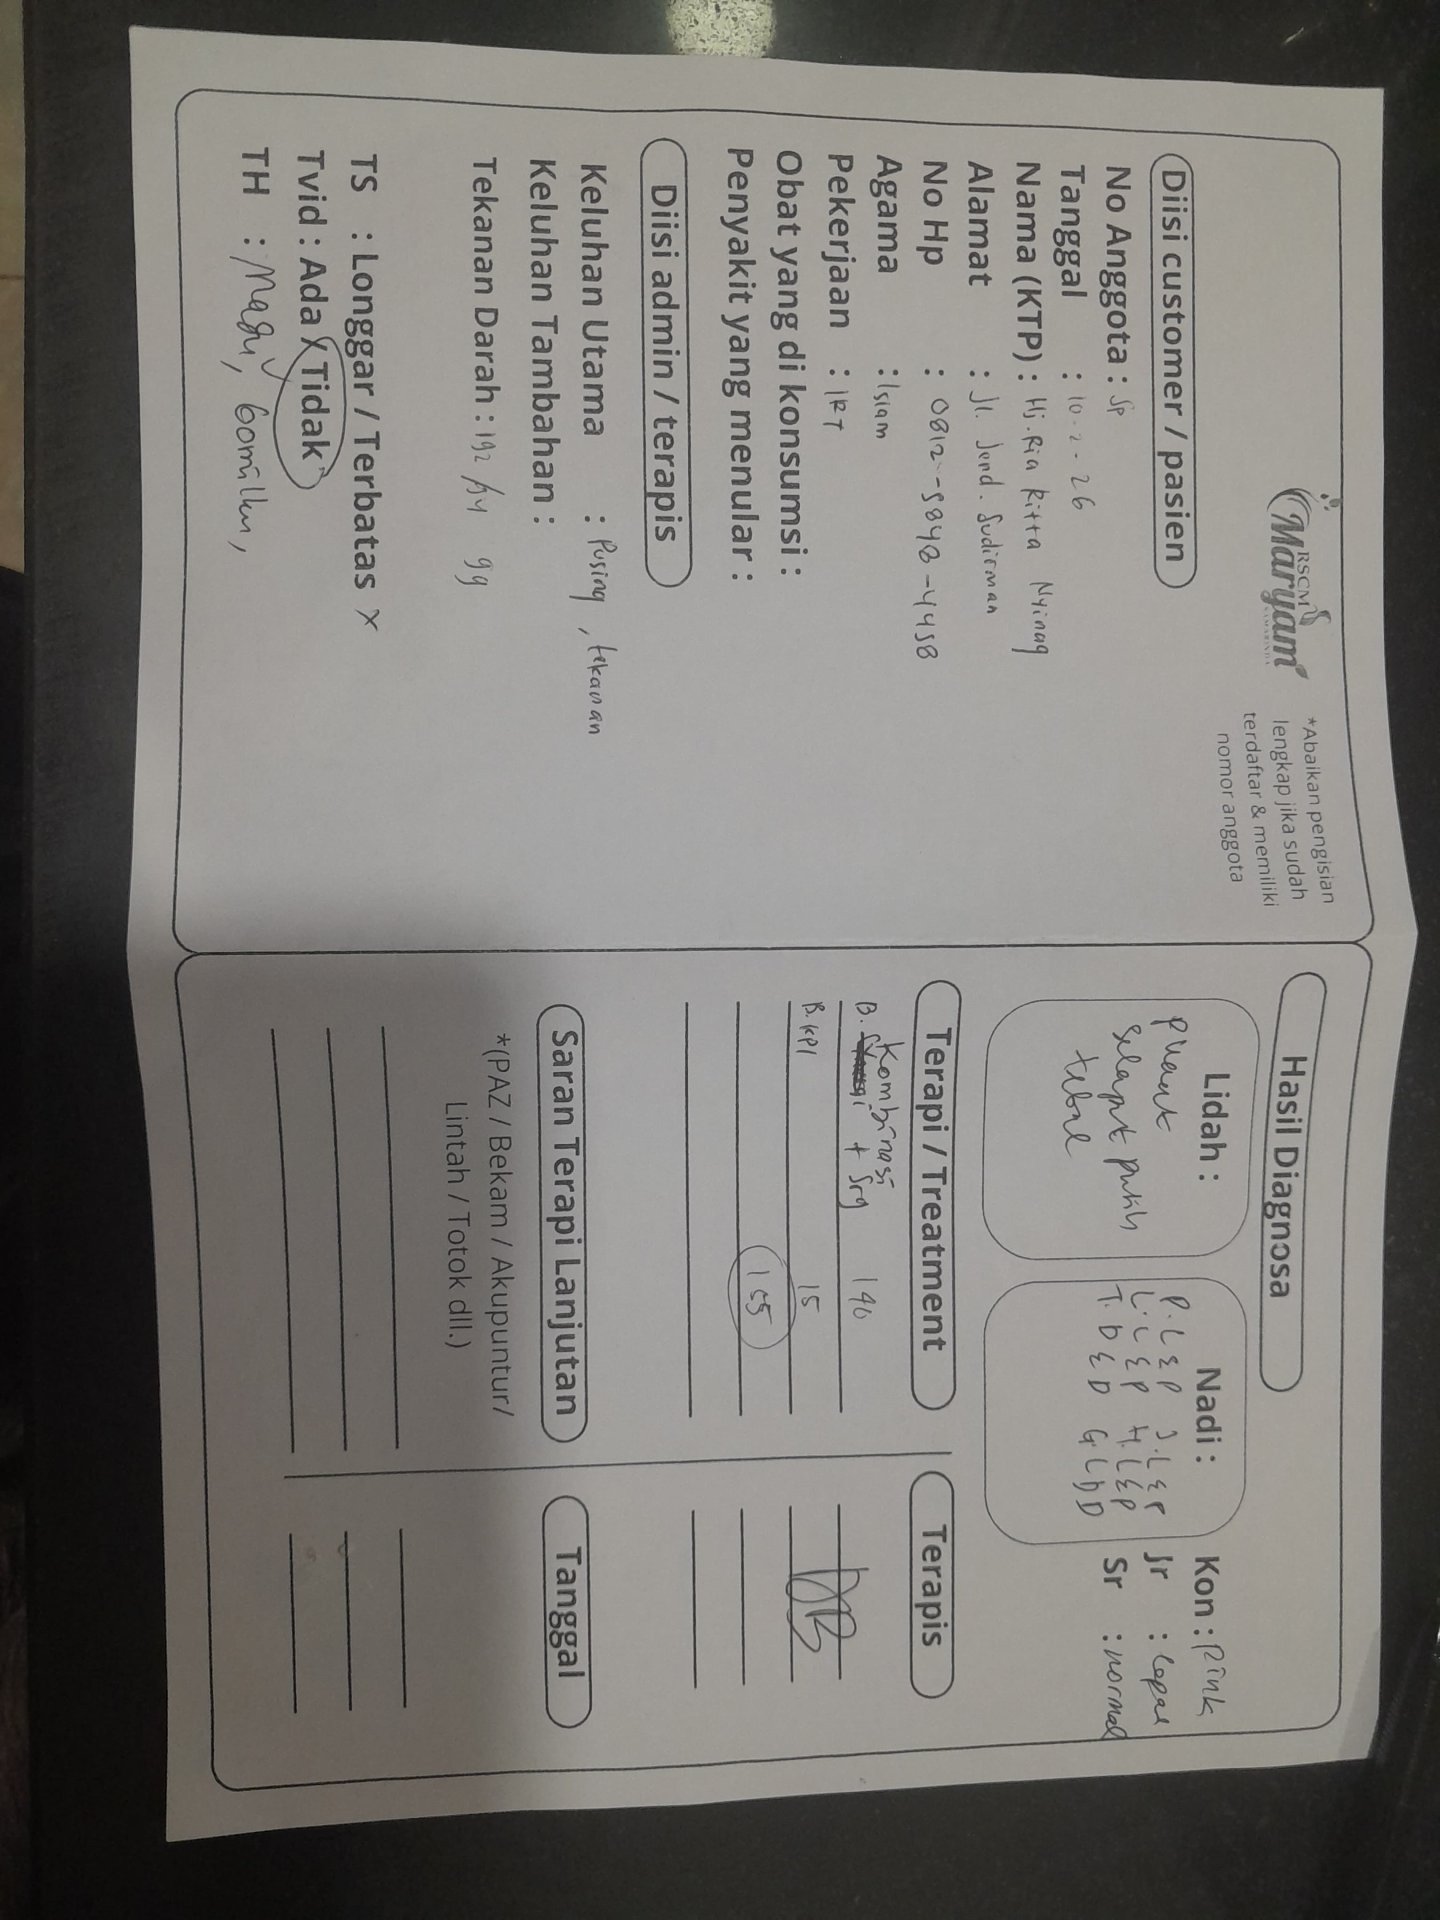 RSCM
Maryam
SAMARINDA
*Abaikan pengisian
lengkap jika sudah
terdaftar & memiliki
nomor anggota
Diisi customer / pasien
No Anggota : SP
Tanggal : 10-2-26
Nama (KTP) : Hj. Ria Ritta Nyinag
Alamat : Jl. Jend. Sudirman
No Hp : 0812-5848-4458
Agama : Islam
Pekerjaan : IRT
Obat yang di konsumsi :
Penyakit yang menular :
Diisi admin / terapis
Keluhan Utama : Pusing, tekanan
Keluhan Tambahan :
Tekanan Darah : 192/ 99
TS : Longgar / Terbatas x
Tvid : Ada / Tidak
TH :
Hasil Diagnosa
Lidah :
selaput putih
tebal
Nadi :
P. L E P J. L E P
L. L E P H. L E P
T. D E D G. L D D
Kon : Pink
Jr :
Sr : normal
Terapi / Treatment
Kombinasi
B. + Srg 140
B. KPI 15
155
Terapis
Saran Terapi Lanjutan
*(PAZ / Bekam / Akupuntur/
Lintah / Totok dll.)
Tanggal